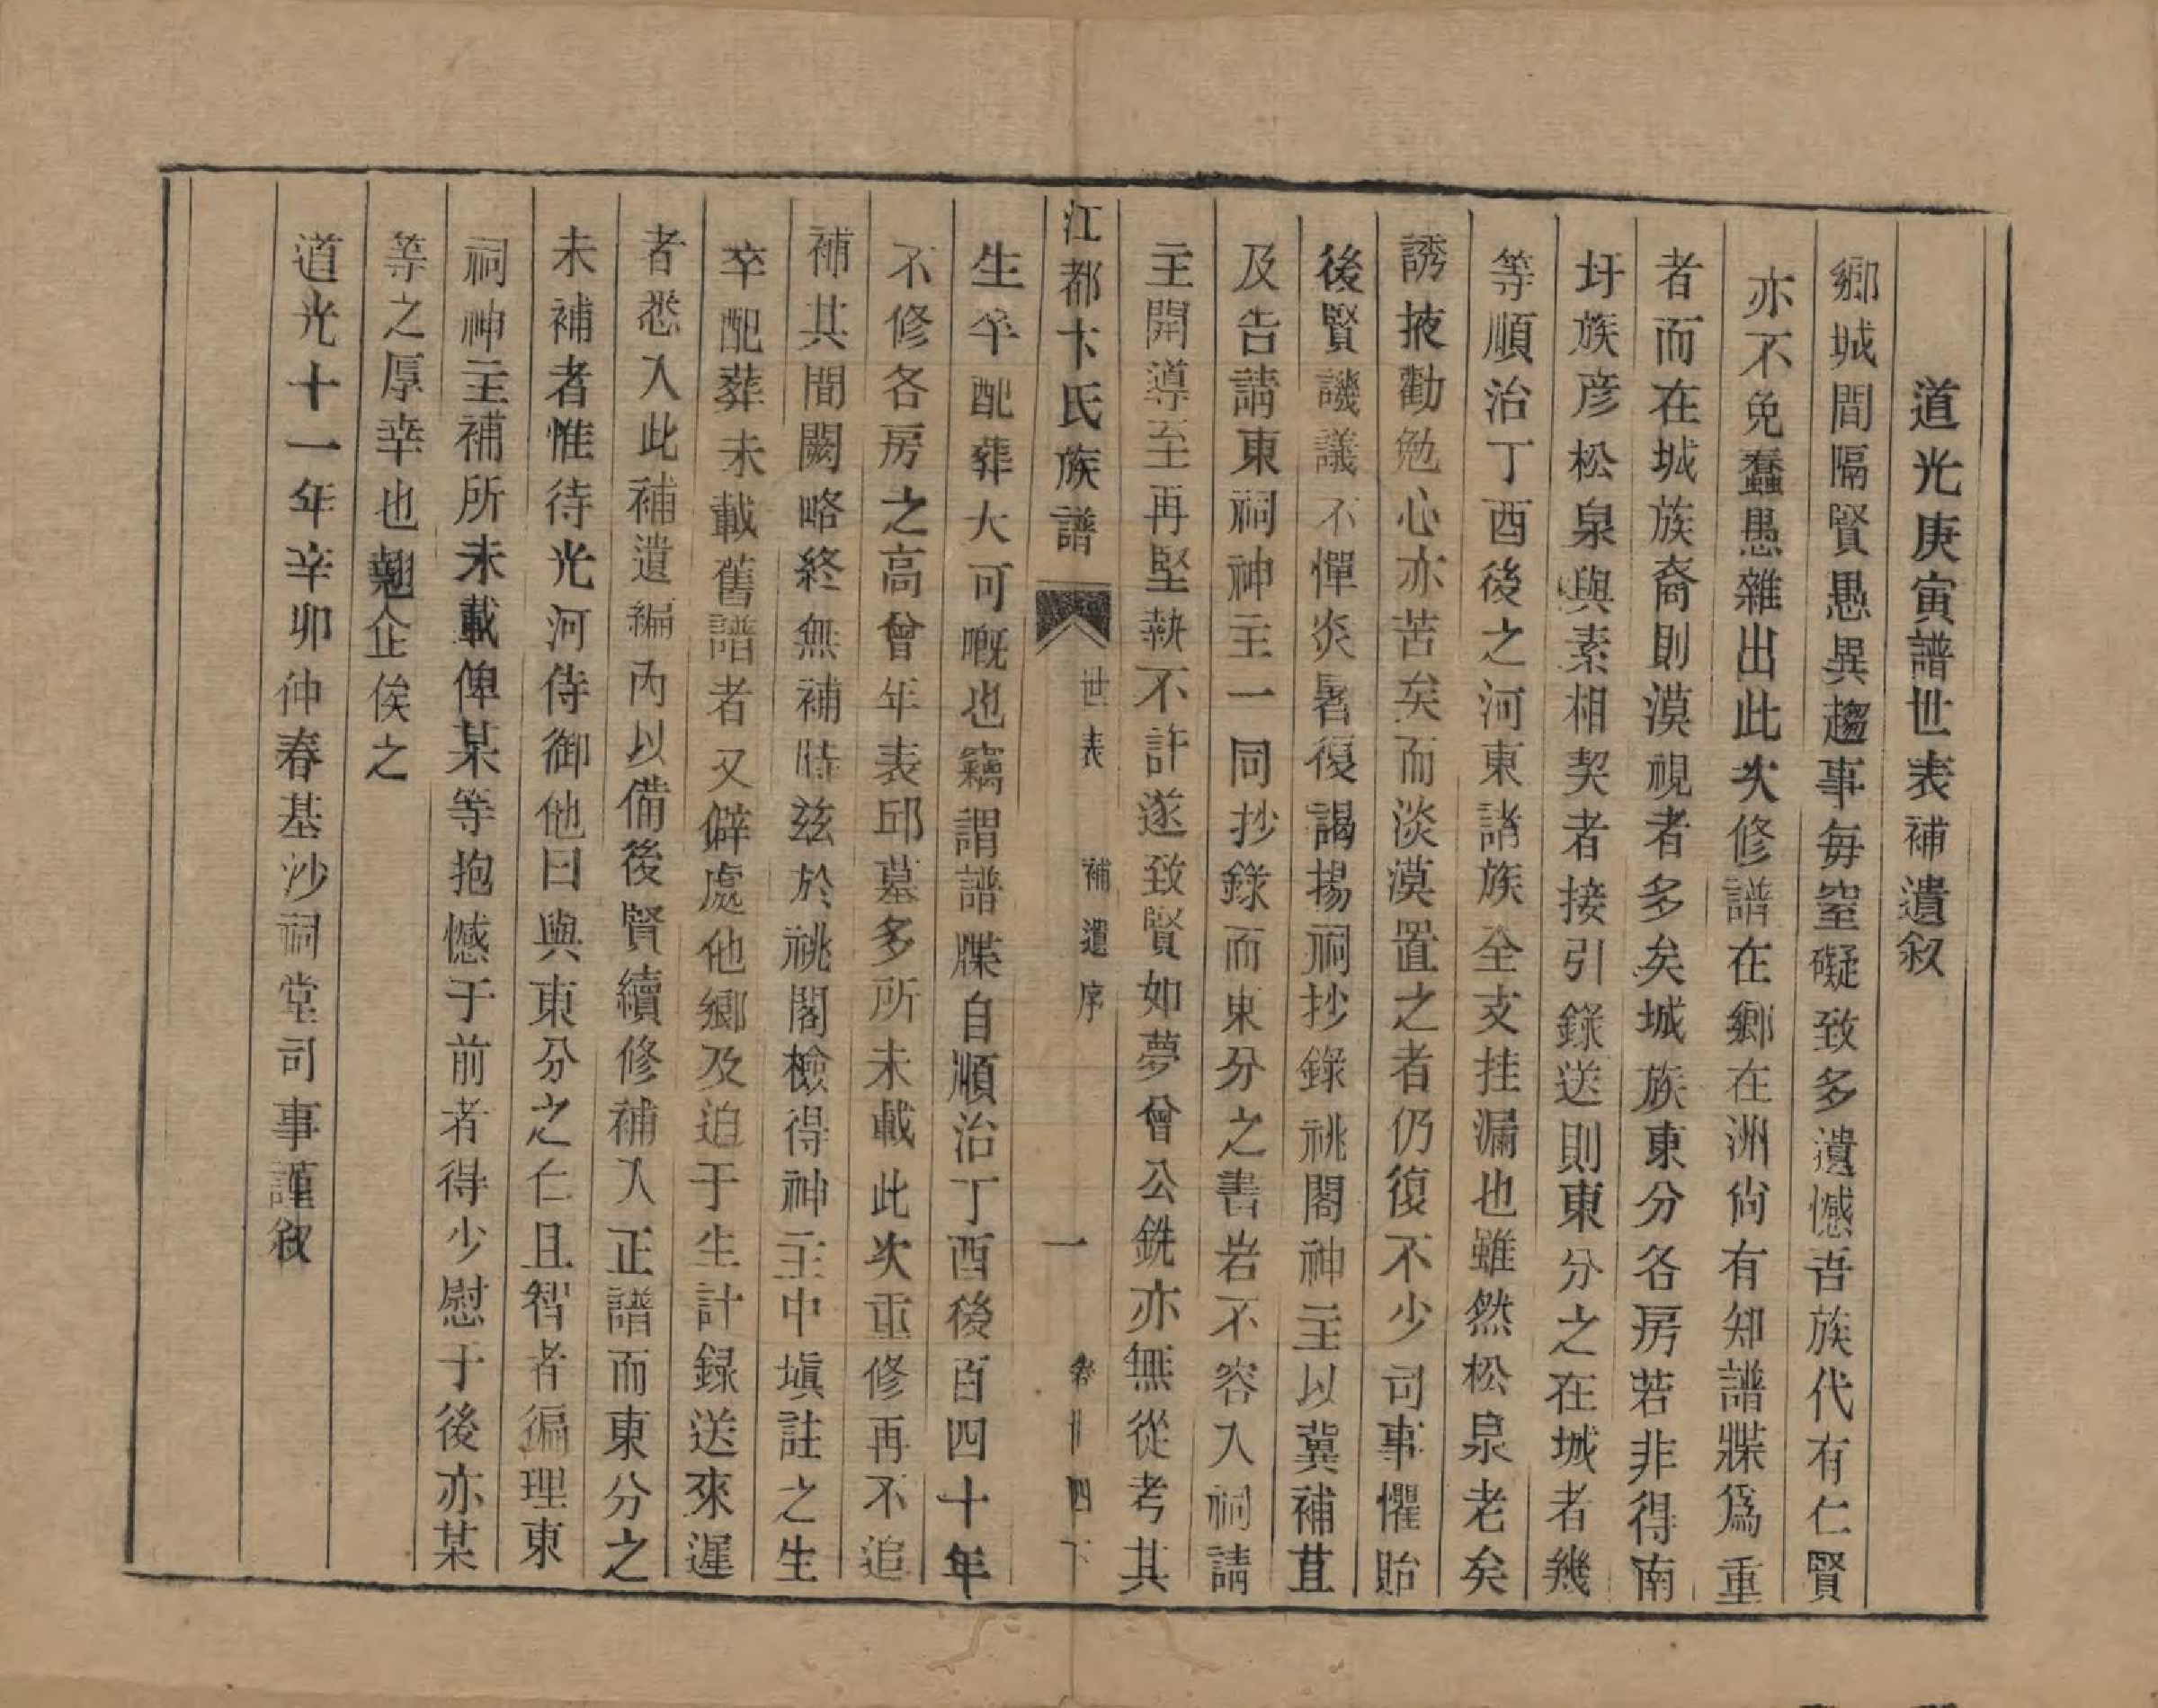 道光庚寅譜世表補遺叙
鄉城間隔賢愚異趨事每窒礙致多遺憾吾族代有仁賢
亦不免蠢愚雜出此次修譜在鄉在洲尙有知譜牒爲重
者而在城族裔則漠視者多矣城族東分各房若非得南
圩族彦松泉與素相契者接引錄送則東分之在城者幾
等順治丁酉後之河東諸族全支挂漏也雖然松泉老矣
誘掖勸勉心亦苦矣而淡漠置之者仍復不少司事懼貽
後賢譏議不憚炎暑復謁揚祠抄錄祧閣神主以冀補苴
及告請東祠神主一同抄錄而東分之書岩不容入祠請
主開導至再堅執不許遂致賢如夢曾公銑亦無從考其
江都卞氏族譜 世表 補遺序 一 卷廿四下
生卒配葬大可嘅也竊謂譜牒自順治丁酉後百四十年
不修各房之高曾年表邱墓多所未載此次重修再不追
補其間闕略終無補時兹於祧閣檢得神主中塡註之生
卒配葬未載舊譜者又僻處他鄉及迫于生計録送來遲
者悉入此補遺編內以備後賢續修補入正譜而東分之
未補者惟待光河侍御他日與東分之仁且智者徧理東
祠神主補所未載俾某等抱憾于前者得少慰于後亦某
等之厚幸也翹企俟之
道光十一年辛卯仲春基沙祠堂司事謹叙